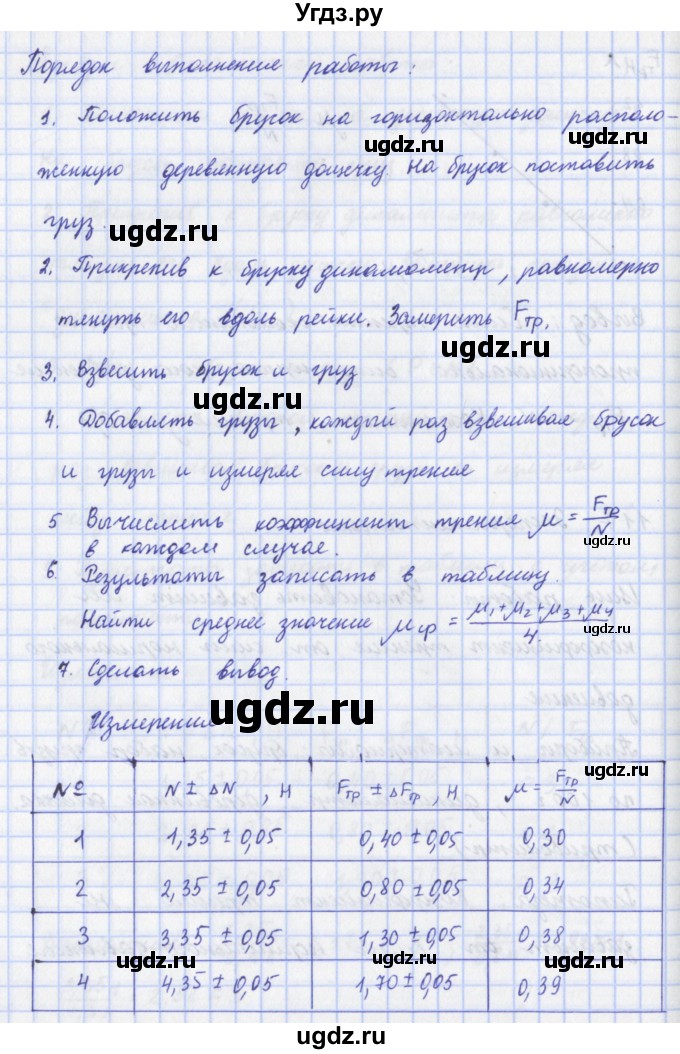 Угдз.ру
Порядок выполнения работы:
1. Положить брусок на горизонтально располо-
ugdz.ru
женную деревянную дощечку. На брусок поставить
ugdz.ru
груз.
ugdz.ru
2. Прикрепив к бруску динамометр, равномерно
тянуть его вдоль рейки. Замерить Fтр.
ugdz.ru
3. Взвесить брусок и груз
ugdz.ru
4. Добавлять грузы, каждый раз взвешивая брусок
и грузы и измеряя силу трения
5 Вычислить коэффициент трения μ = Fтр/N
ugdz.ru
в каждом случае.
6. Результаты записать в таблицу.
Найти среднее значение μср = (μ1+μ2+μ3+μ4)/4.
7. Сделать вывод.
ugdz.ru
Измерения
№ N ± ΔN, Н Fтр ± ΔFтр, Н μ = Fтр/N
ugdz.ru
1 1,35 ± 0,05 0,40 ± 0,05 0,30
ugdz.ru
2 2,35 ± 0,05 0,80 ± 0,05 0,34
3 3,35 ± 0,05 1,30 ± 0,05 0,38
ugdz.ru ugdz.ru
4 4,35 ± 0,05 1,70 ± 0,05 0,39
ugdz.ru